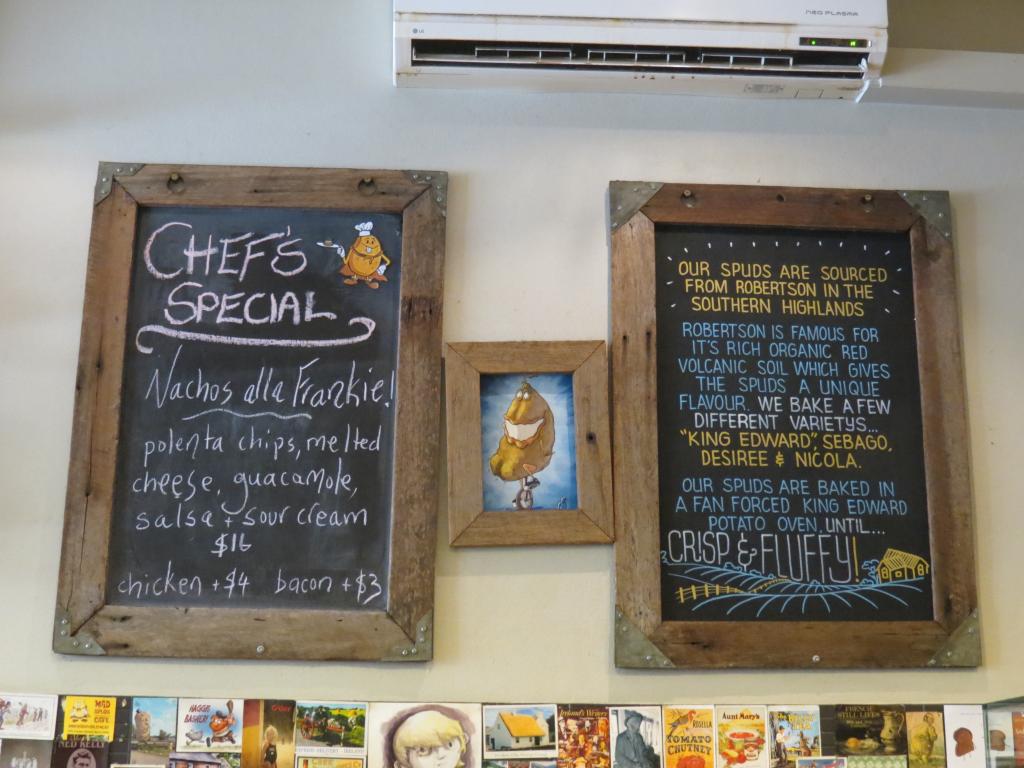 NEO PLASMA
LG
CHEF'S
SPECIAL
Nachos alla Frankie!
polenta chips, melted
cheese, guacamole,
salsa + sour cream
$16
chicken + $4 bacon + $3
OUR SPUDS ARE SOURCED
FROM ROBERTSON IN THE
SOUTHERN HIGHLANDS
ROBERTSON IS FAMOUS FOR
IT'S RICH ORGANIC RED
VOLCANIC SOIL WHICH GIVES
THE SPUDS A UNIQUE
FLAVOUR. WE BAKE A FEW
DIFFERENT VARIETYS...
"KING EDWARD", SEBAGO,
DESIREE & NICOLA.
OUR SPUDS ARE BAKED IN
A FAN FORCED KING EDWARD
POTATO OVEN UNTIL...
CRISP & FLUFFY!
MAD
SPUDS
CAFE
NED KELLY
HAGGIS
BASHER!
Ireland's Writers
ROSELLA
TOMATO
CHUTNEY
AUNT MARY'S
FRENCH
STILL LIVES